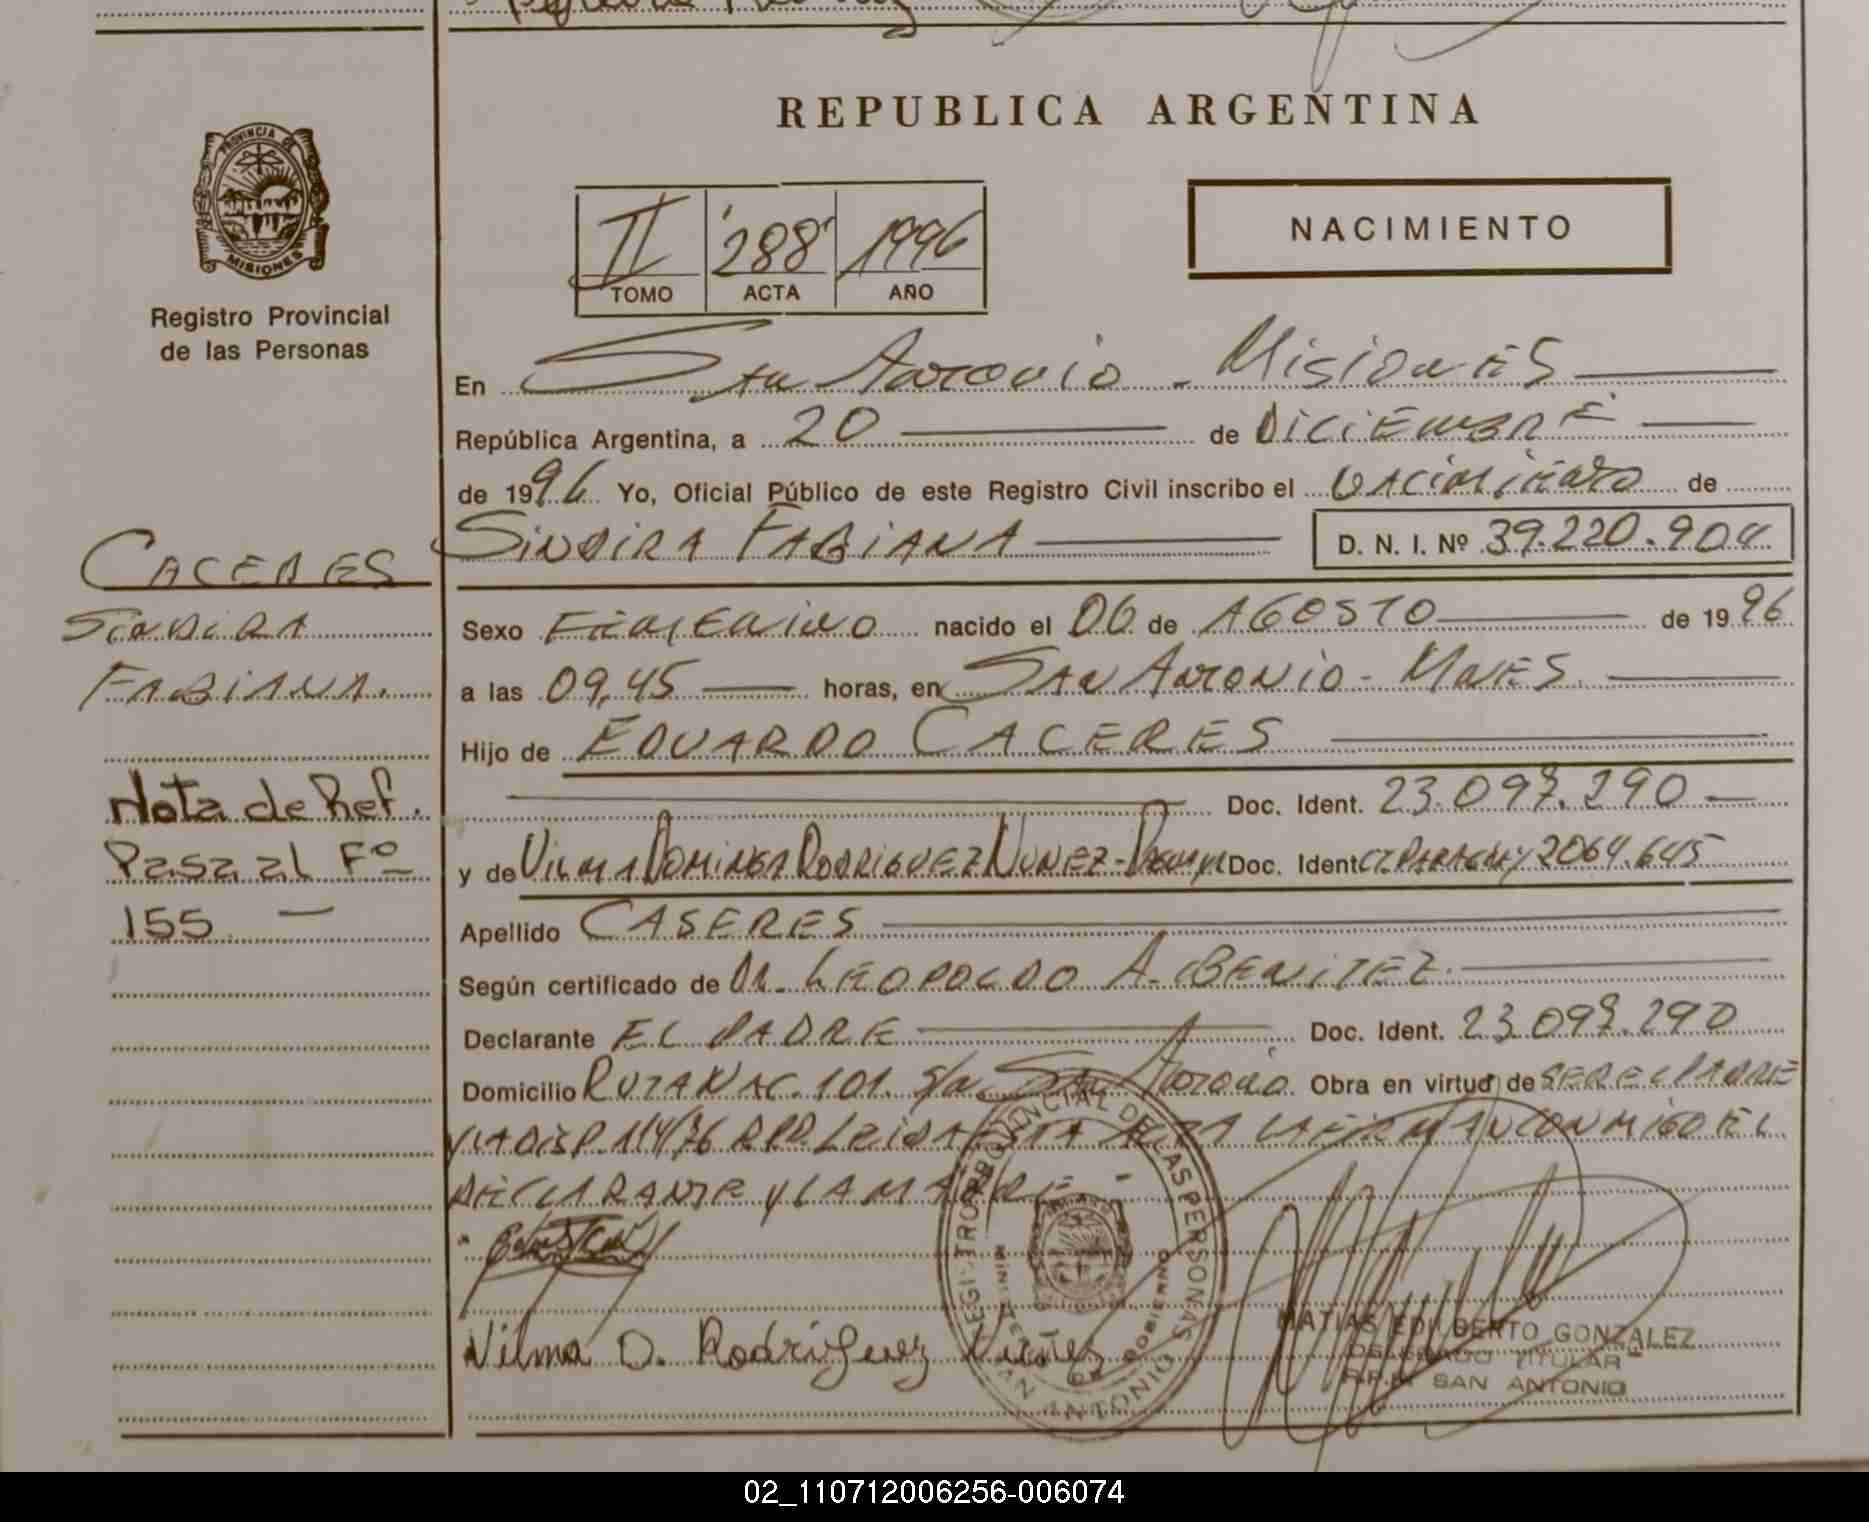 REPUBLICA ARGENTINA
PROVINCIA DE
MISIONES
Registro Provincial
de las Personas
II 288 1996
TOMO ACTA AÑO
NACIMIENTO
En San Antonio - Misiones
República Argentina, a 20 de Diciembre
de 1996 Yo, Oficial Público de este Registro Civil inscribo el nacimiento de
Sindira Fabiana D. N. I. Nº 39.220.904
CACERES
Sindira
Fabiana.
Nota de Ref.
Pasa al Fº
155 -
Sexo Femenino nacido el 06 de AGOSTO de 1996
a las 09,45 horas, en San Antonio - Mnes.
Hijo de EDUARDO CACERES
Doc. Ident. 23.097.290
y de Vilma Dominga Rodriguez Nunez - Doc. Ident. C.I. Paraguay 2064.645
Apellido CASERES
Según certificado de Dr. LEOPOLDO A. BENITEZ.
Declarante EL PADRE Doc. Ident. 23.097.290
Domicilio Ruta Nac. 101. S/n San Antonio Obra en virtud de SER EL PADRE
y la Disp. 114/76 R.P.P. Leida Acta la firman conmigo el
declarante y la madre
Vilma D. Rodriguez Nuñes
REGISTRO PROVINCIAL DE LAS PERSONAS
MINISTERIO DE GOBIERNO
SAN ANTONIO
MATIAS EDILBERTO GONZALEZ
DELEGADO TITULAR
R.P.P. SAN ANTONIO
02_110712006256-006074